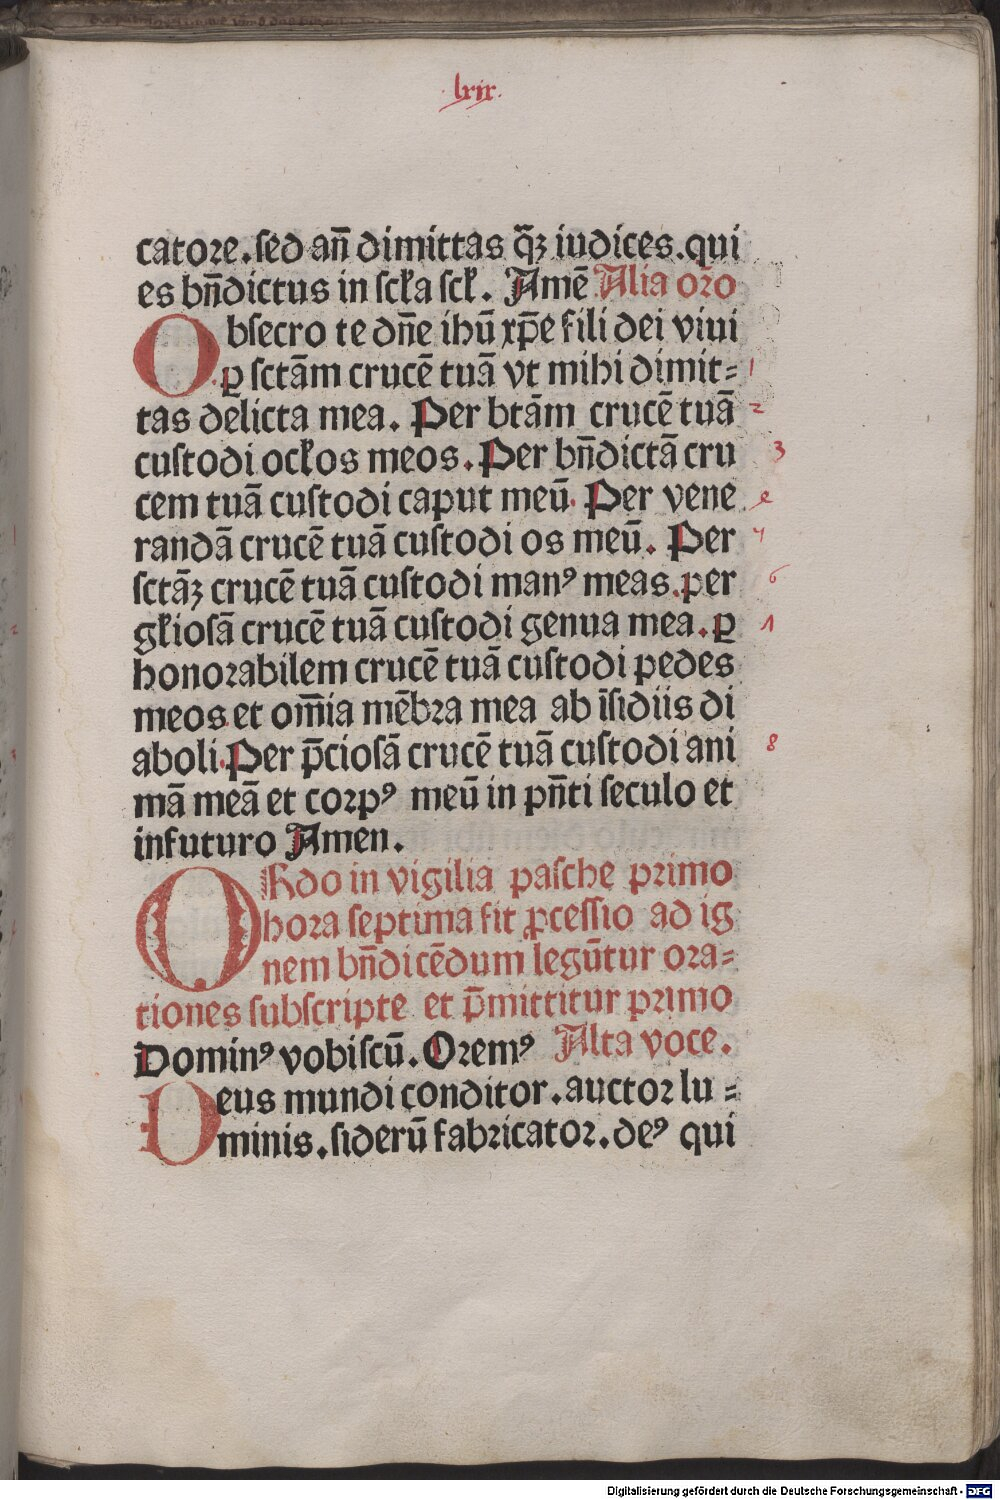 lxix.
catore. sed an̄ dimittas q̄ꝫ iudices. qui
es bn̄dictus in scła scł. Amē Alia or̄o
Obsecro te dn̄e ihū xp̄e fili dei viui
ꝑ sctām crucē tuā vt mihi dimit= 1
tas delicta mea. Per btām crucē tuā 2
custodi ocłos meos. Per bn̄dictā cru 3
cem tuā custodi caput meū. Per vene
randā crucē tuā custodi os meū. Per
sctāꝫ crucē tuā custodi manꝰ meas. per 6
głiosā crucē tuā custodi genua mea. ꝑ
honorabilem crucē tuā custodi pedes
meos et om̄ia mēbra mea ab īsidiis di
aboli. Per p̄ciosā crucē tuā custodi ani 8
mā meā et corpꝰ meū in pn̄ti seculo et
infuturo Amen.
ORdo in vigilia pasche primo
hora septima fit ꝓcessio ad ig
nem bn̄dicēdum legūtur ora=
tiones subscripte et p̄mittitur primo
Dominꝰ vobiscū. Oremꝰ Alta voce.
Deus mundi conditor. auctor lu=
minis. siderū fabricator. deꝰ qui
Digitalisierung gefördert durch die Deutsche Forschungsgemeinschaft - DFG